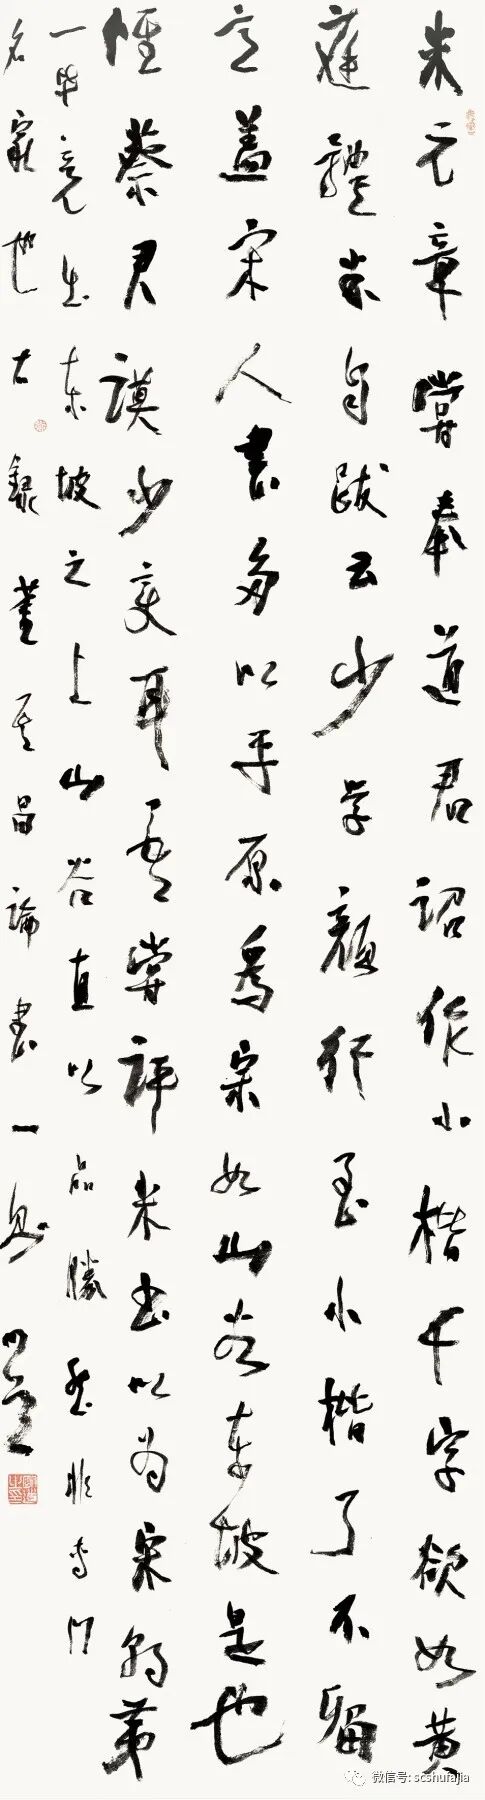 米元章嘗奉道君詔作小楷千字欲如黃
庭體米自跋云少學顏行至小楷了不留
意蓋宋人書多以平原為宗如山谷東坡是也
惟蔡君謨少變耳吾嘗評米書以為宋朝第
一畢竟出東坡之上山谷直以品勝然非專門
名家也右錄董其昌論書一則
微信号: scshufajia